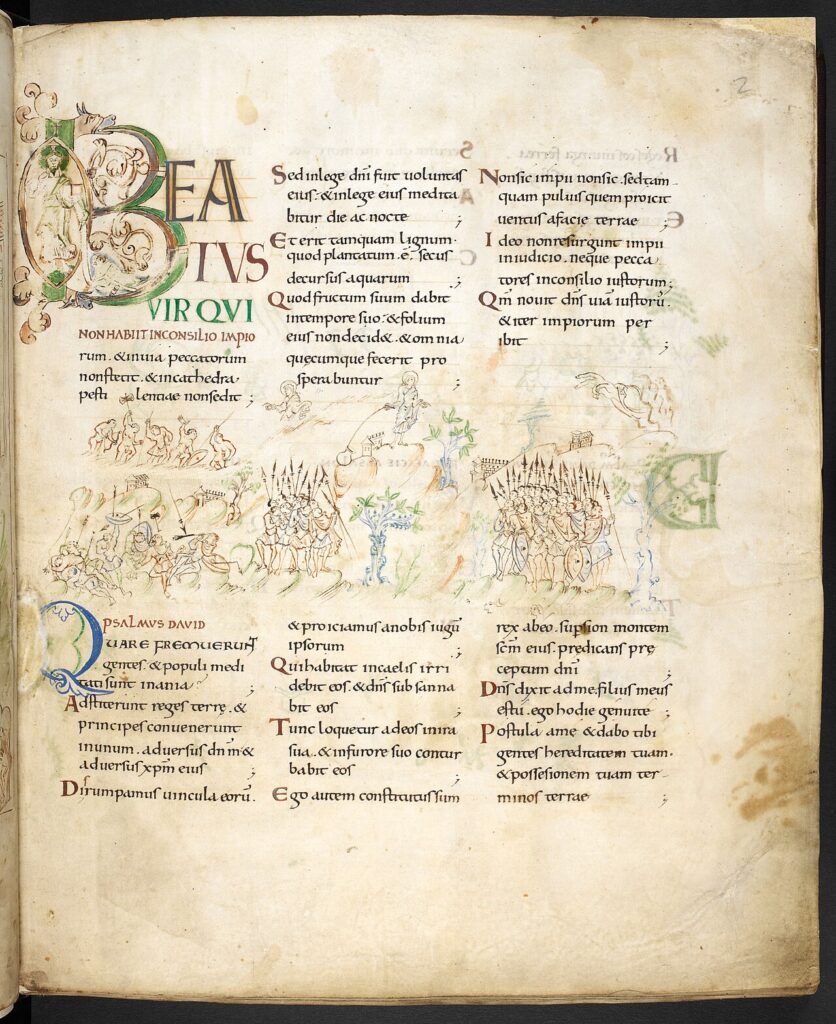 2
BEA
TVS
VIR QVI
NON HABIIT IN CONSILIO IMPIO
rum . & inuia peccatorum
nonstetit . & incathedra
pesti lentiae nonsedit ;
Sed inlege dnī fuit uoluntas
eius . & inlege eius medita
bitur die ac nocte ;
Et erit tamquam lignum .
quod plantatum . ē . secus
decursus aquarum ;
Quod fructum suum dabit
intempore suo . & folium
eius non decid& . & omnia
quęcumque fecerit pro
sperabuntur ;
Nonsic impii nonsic . sed tam
quam puluis quem proicit
uentus afacie terrae ;
Ideo nonresurgunt impii
iniudicio . neque pecca
tores inconsilio iustorum ;
Qm̄ nouit dn̄s uiā iustorū .
& iter impiorum per
ibit ;
PSALMUS DAVID
QUARE FREMUERUNT
gentes . & populi medi
tati sunt inania ;
Adstiterunt reges terrę . &
principes conuenerunt
inunum . aduersus dn̄m . &
aduersus xp̄m eius ;
Dirumpamus uincula eorū .
& proiciamus anobis iugū
ipsorum ;
Qui habitat incaelis irri
debit eos . & dn̄s subsanna
bit eos ;
Tunc loquetur adeos inira
sua . & infurore suo contur
babit eos ;
Ego autem constitutus sum
rex abeo . supsion montem
sc̄m eius . predicans prę
ceptum dnī ;
Dn̄s dixit adme . filius meus
estu . ego hodie genuite ;
Postula ame & dabo tibi
gentes hereditatem tuam .
& possesionem tuam ter
minos terrae ;